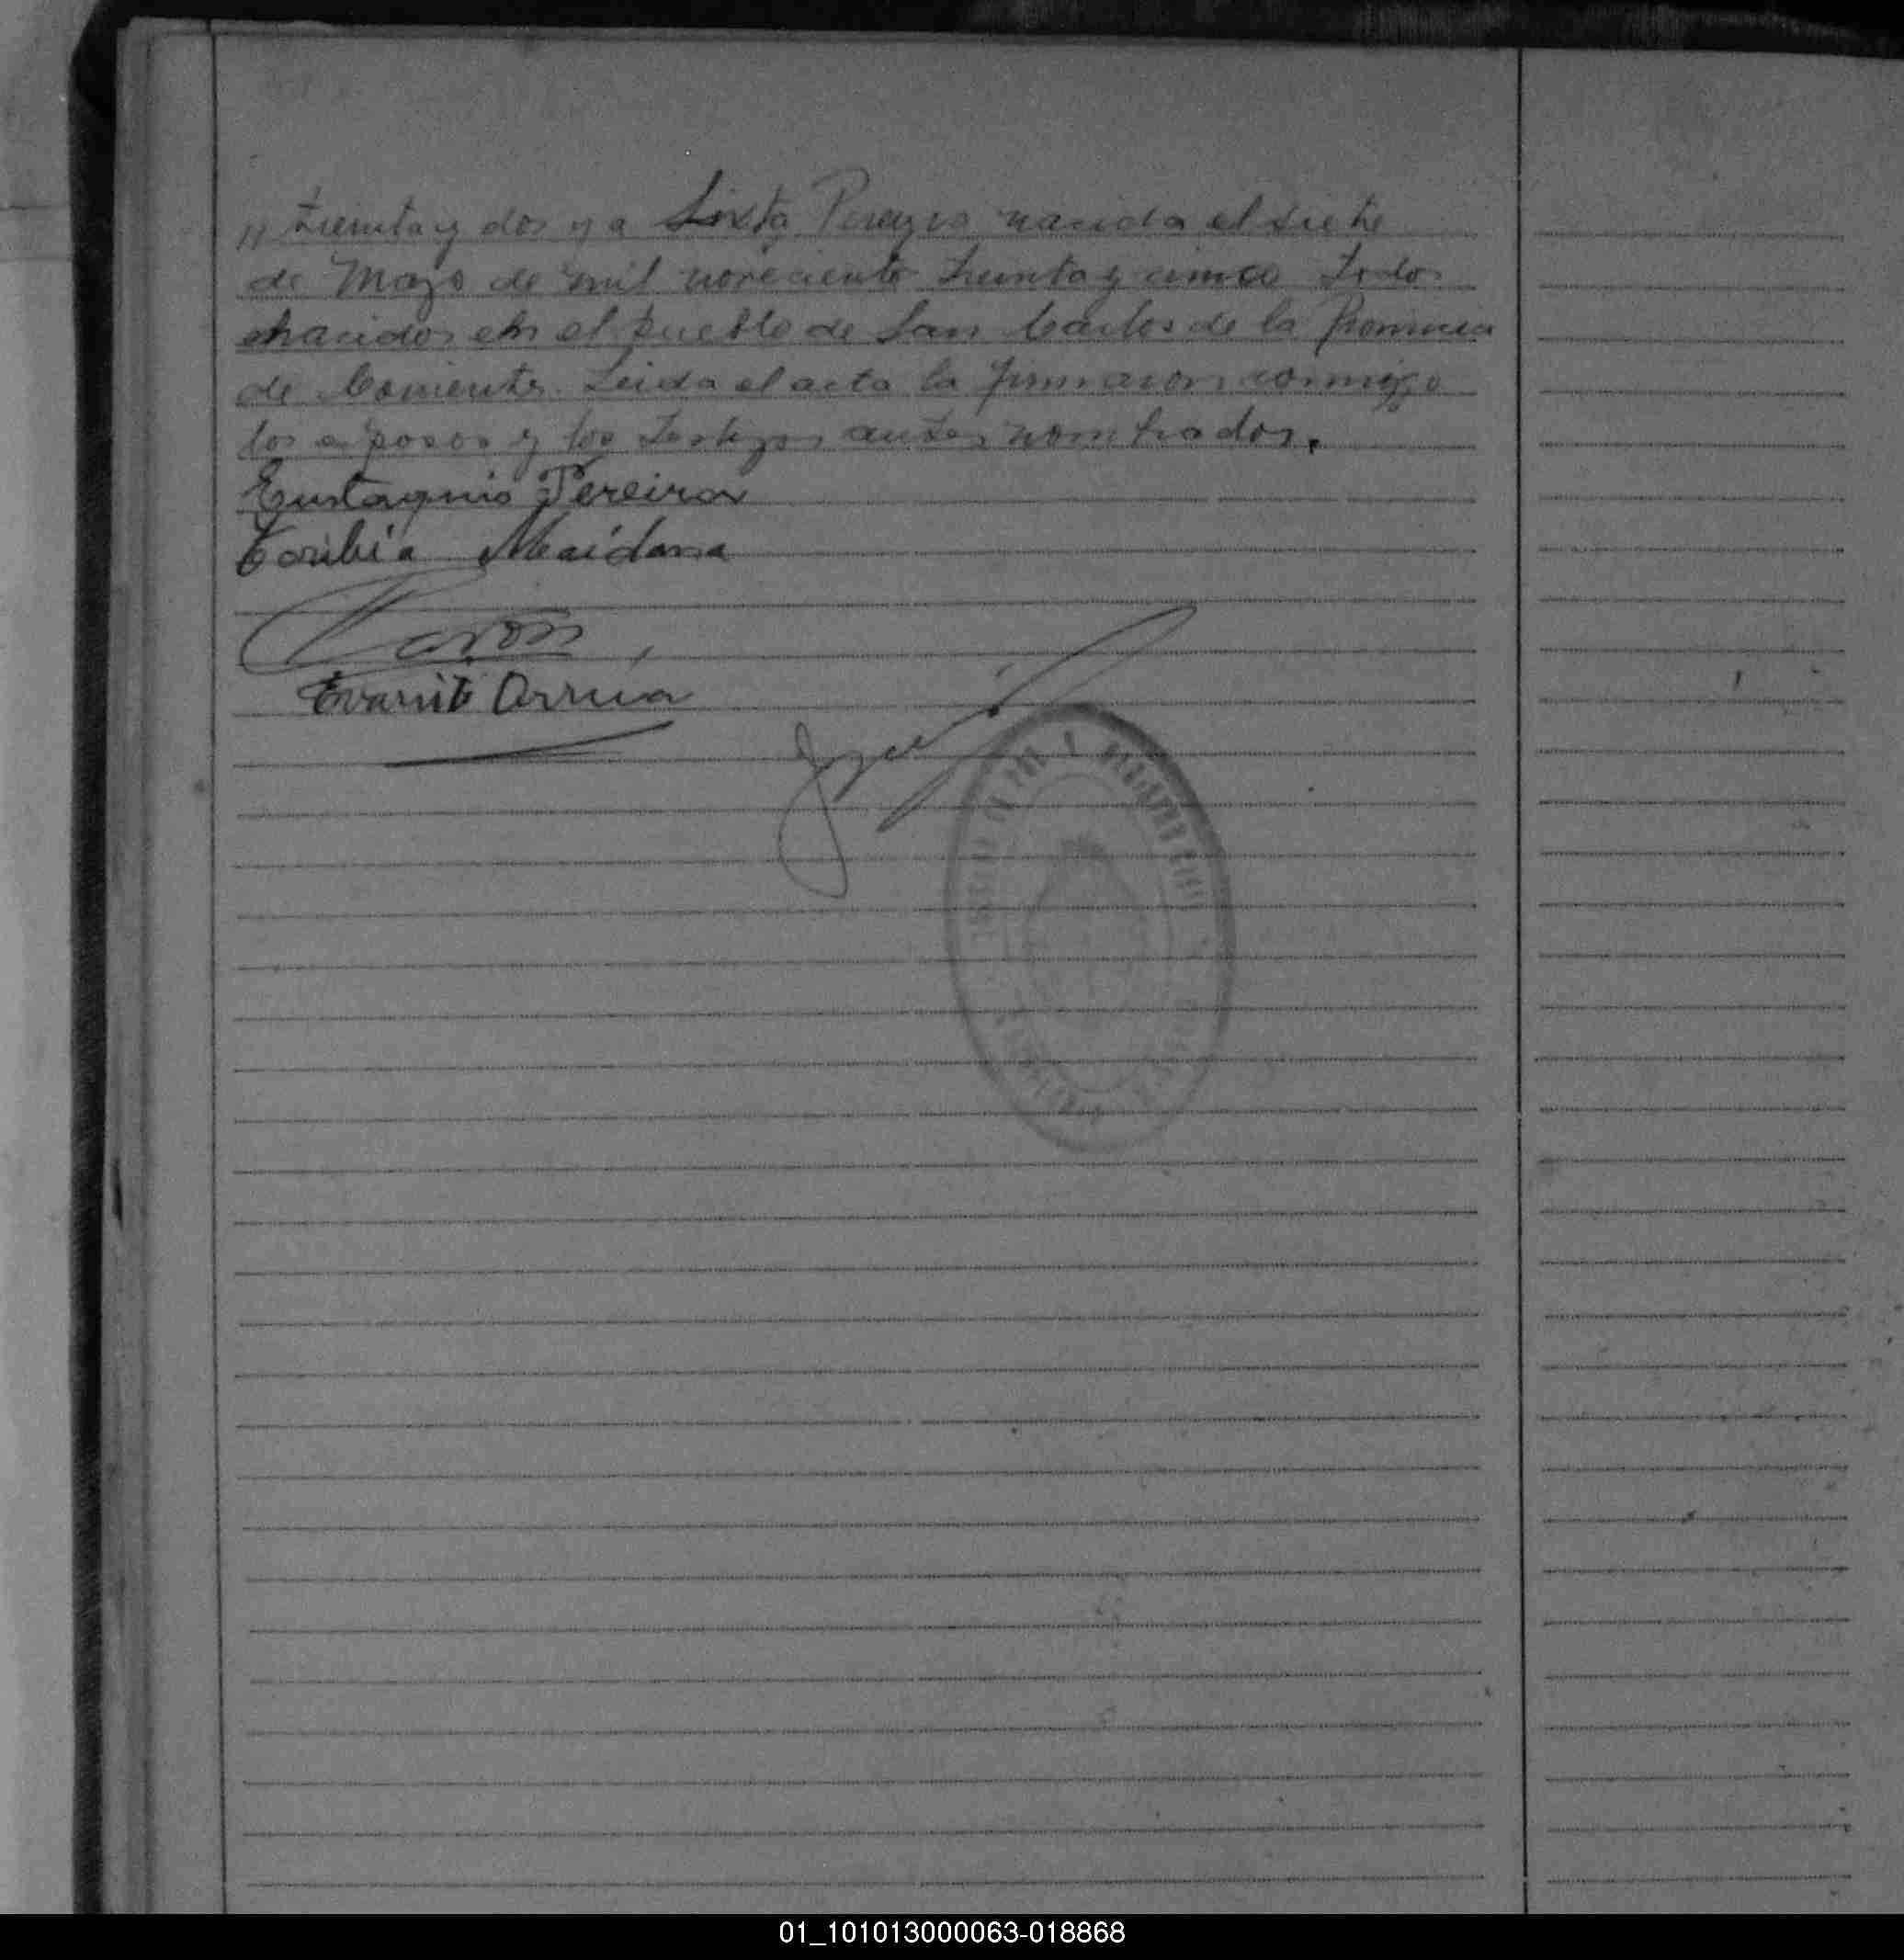 " treinta y dos y a Sixta Pereyra nacida el siete
de Mayo de mil novecientos treinta y cinco todos
nacidos en el pueblo de San Carlos de la Provincia
de Corrientes. Leida el acta la firmaron conmigo
los esposos y los testigos antes nombrados.
Eustaquio Pereira
Toribia Maidana
Evaristo Arrua
01_101013000063-018868